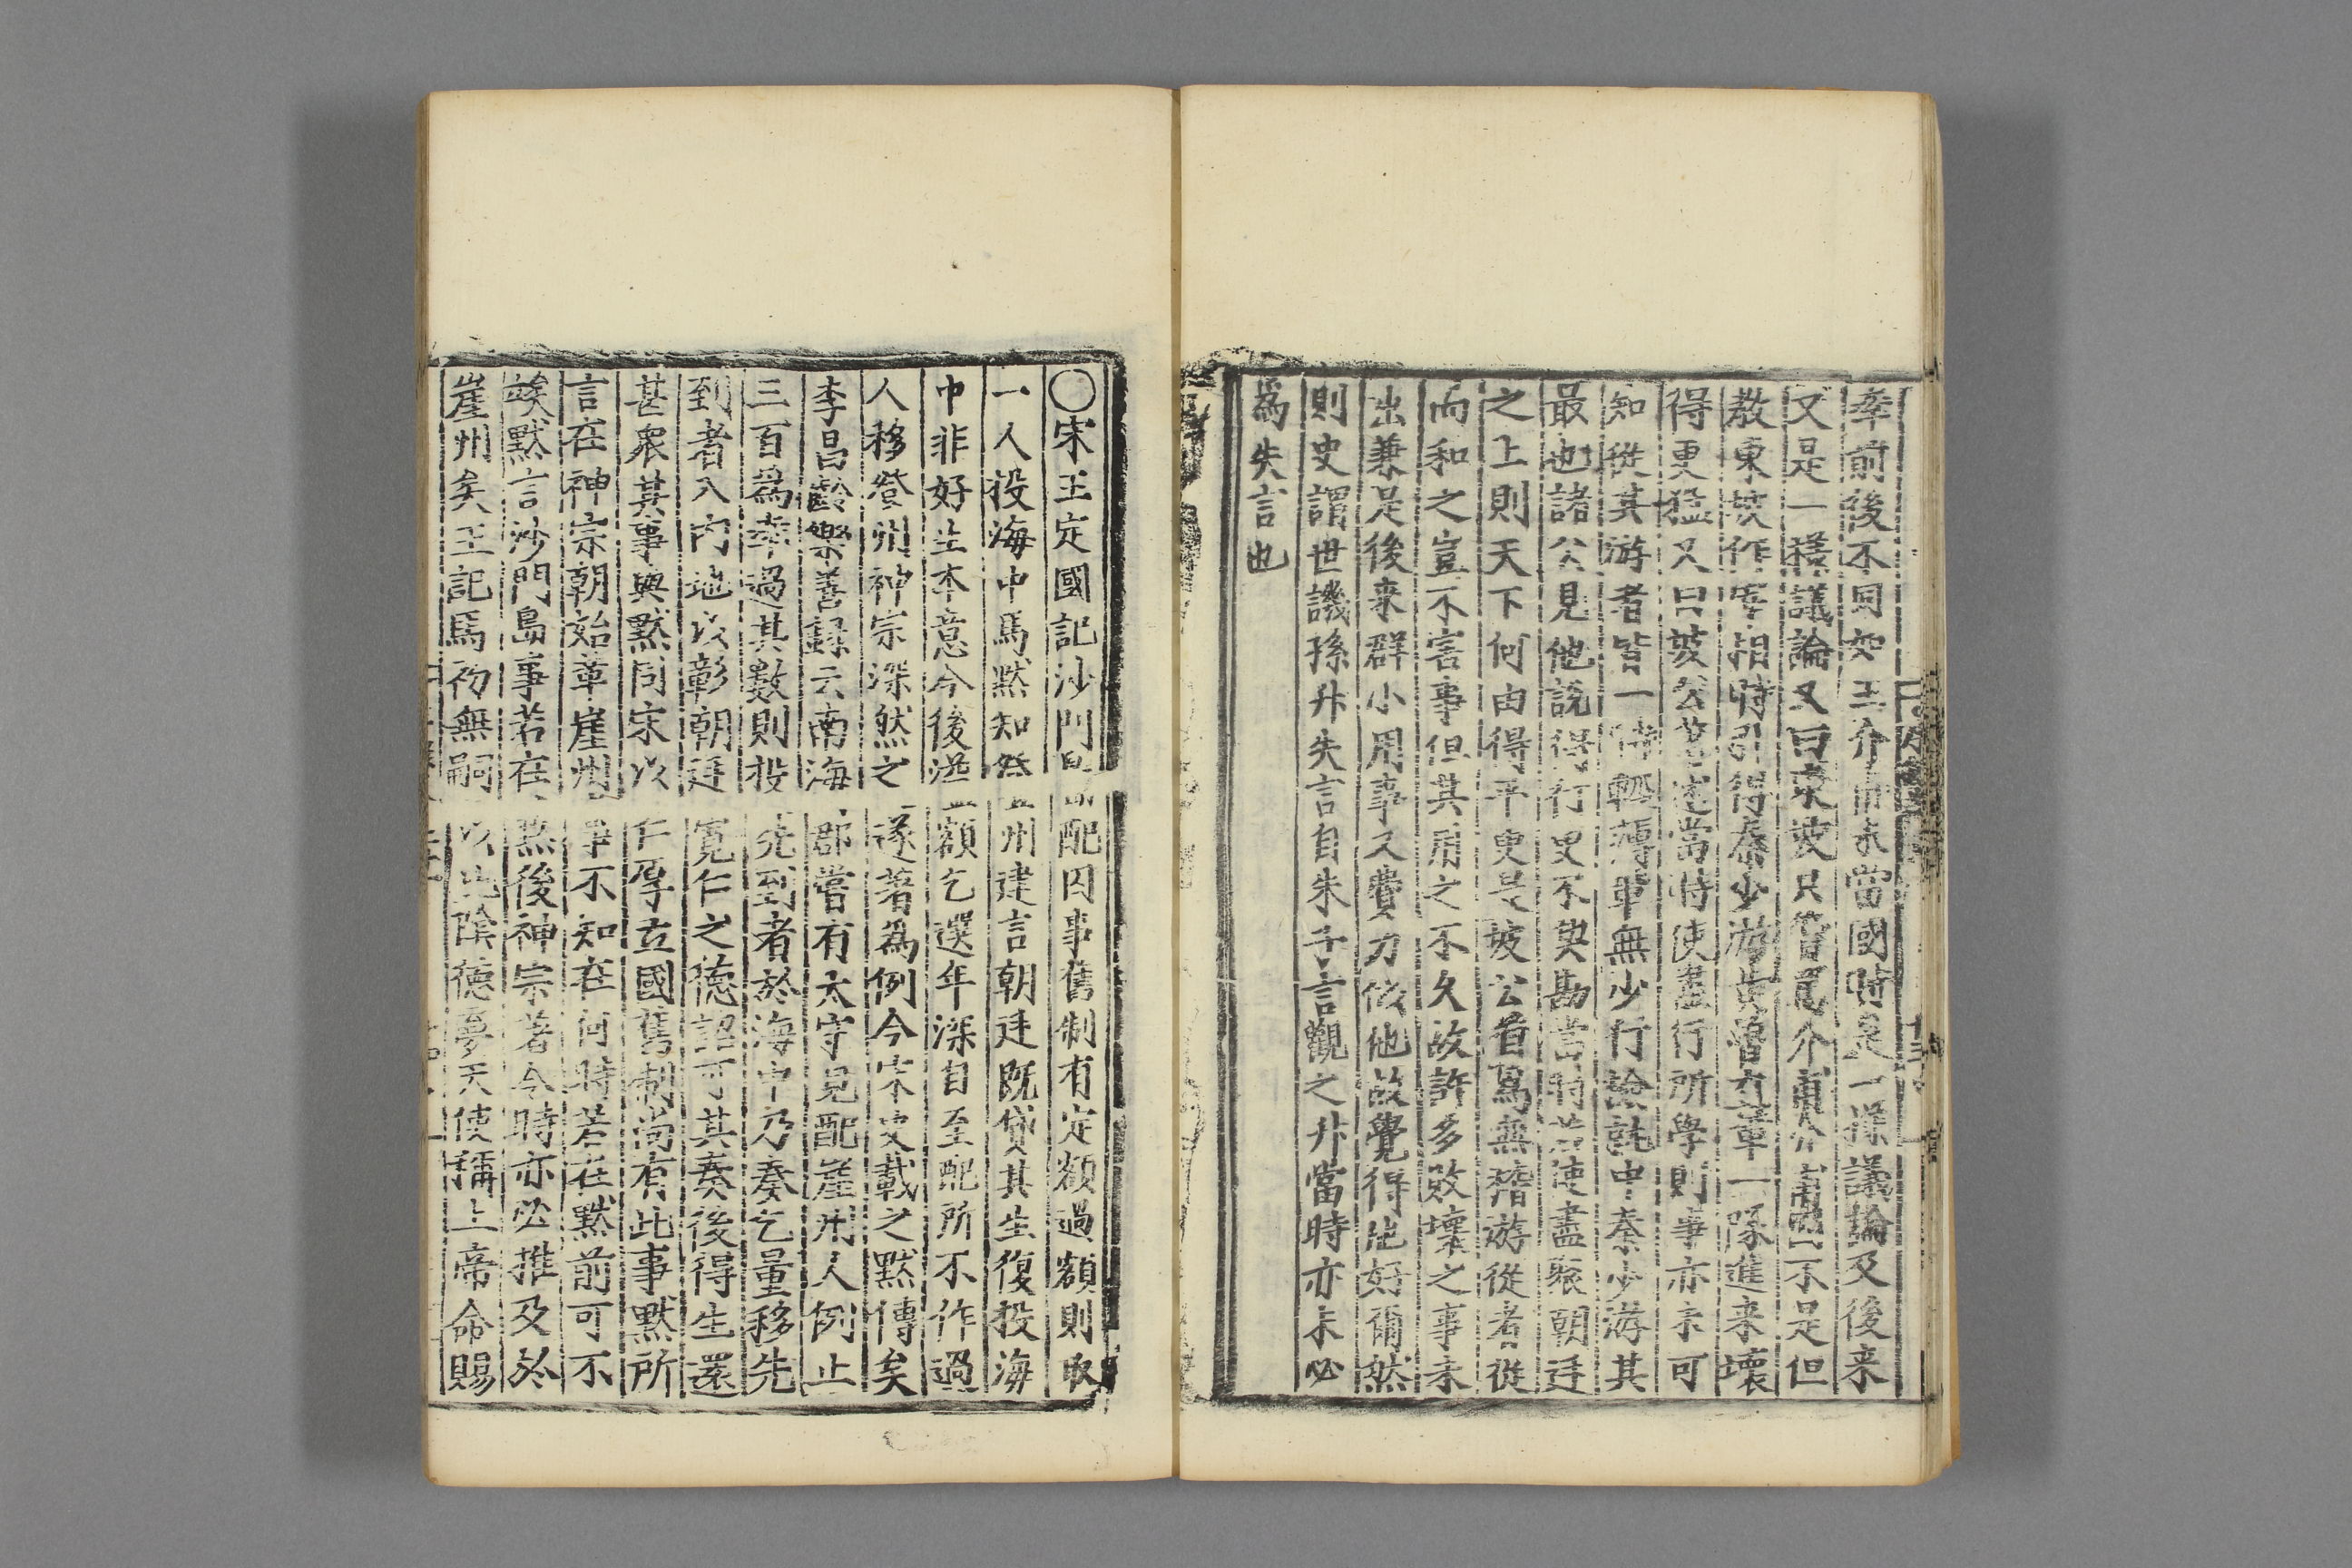 牽前後不同如王介甫未當國時是一㨾議論及後來
又是一㨾議論又曰東坡只管罵介甫介甫固不是但
教東坡作宰相時引得秦少游黄魯直軰一隊進来壞
得更猛又曰坡公首述當時使盡行所學則事亦未可
知從其游者皆一時輕薄軰無少行撿就中秦少游其
最也諸公見他說得行更不契勘當時若使盡聚朝廷
之上則天下何由得平更是坡公首爲無稽游從者從
而和之豈不害事但其用之不久故許多敗壞之事未
出兼是後来群小用事又費力似他故覺得他好爾然
則史謂世譏孫升失言自朱子言觀之升當時亦未必
爲失言也
〇宋王定國記沙門配囚事舊制有定額過額則取
一人投海中馬黙知登州建言朝廷旣貸其生復投海
中非好生本意今後溢額乞選年深自至配所不作過
人移登州神宗深然之遂著爲例今宋史載之黙傳矣
李昌齡樂善錄云南海郡嘗有太守見配崖州人例止
三百爲率過其數則投先到者於海中乃奏乞量移先
到者入内地以彰朝廷寬仁之德詔可其奏後得生還
甚衆其事與黙同宋以仁厚立國舊制尚有此事黙所
言在神宗朝始革崖州事不知在何時若在黙前可不
竢黙言沙門島事若在黙後神宗著令時亦必推及於
崖州矣王記馬初無嗣以此陰德夢天使稱上帝命賜